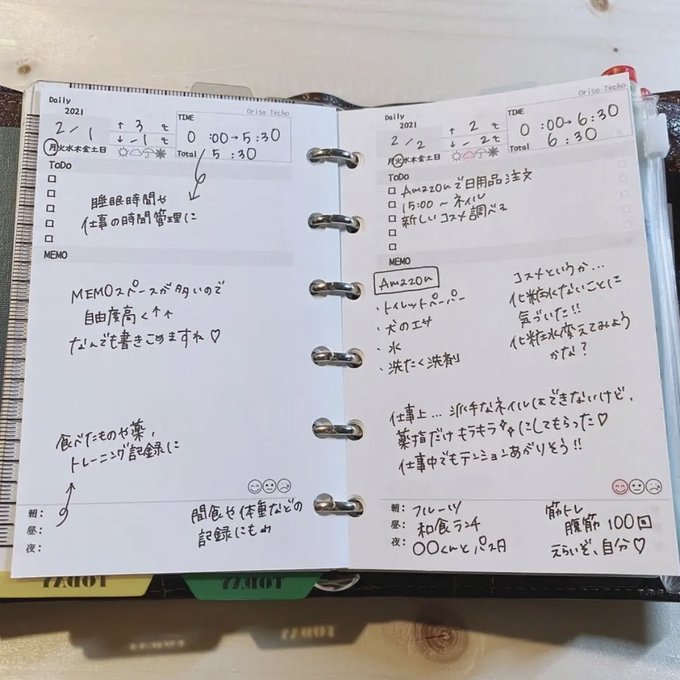 Daily
2021
2/1
↑ 3 ℃
↓ -1 ℃
月火水木金土日
TIME
0:00→5:30
Total
5:30
Oriso Techo
ToDo
睡眠時間や
仕事の時間管理に
MEMO
MEMOスペースが多いので
自由度高く↑↑
なんでも書きこめますね♡
食べたものや薬,
トレーニング記録に
朝:
昼:
夜:
間食や体重などの
記録にも
Daily
2021
2/2
↑ 2 ℃
↓ -2 ℃
月火水木金土日
TIME
0:00→6:30
Total
6:30
Oriso Techo
ToDo
Amazonで日用品注文
15:00～ネイル
新しいコスメ調べる
MEMO
Amazon
・トイレットペーパー
・犬のエサ
・水
・洗たく洗剤
コスメというか…
化粧水ないことに
気づいた!!
化粧水変えてみよう
かな?
仕事上…派手なネイルはできないけど、
薬指だけキラキラにしてもらった♡
仕事中でもテンションあがりそう!!
朝: フルーツ
昼: 和食ランチ
夜: 〇〇くんとパスタ
筋トレ
腹筋100回
えらいぞ、自分♡
TODAY
TODAY